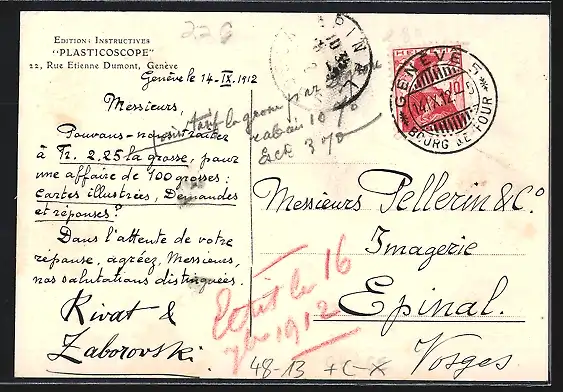 22G
EDITIONS INSTRUCTIVES
"PLASTICOSCOPE"
22, Rue Etienne Dumont, Genève
Genève le 14-IX-1912
Messieurs,
Pouvons-nous traiter
à Fr. 2.25 la grosse, pour
une affaire de 100 grosses:
Cartes illustrées, Demandes
et réponses?
Dans l'attente de votre
réponse, agréez, Messieurs,
nos salutations distinguées.
Rivat &
Zaborovski
la grosse par
rabais 10 %
Esc 3 %
EPINAL
HELVETIA
10
GENÈVE 5
14.IX.12
BOURG DE FOUR
Messieurs Pellerin & Co.
Imagerie
Epinal.
Vosges
Ecrit le 16
7bre 1912
48-13 +C-X